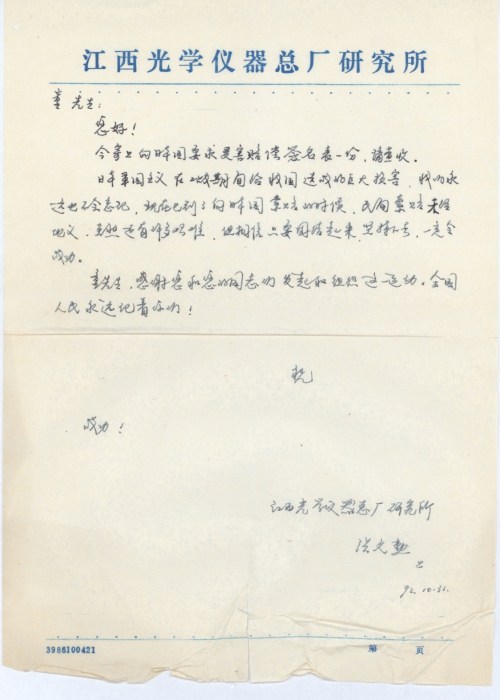 江西光学仪器总厂研究所
童先生：
您好！
今寄上向日本国要求受害赔偿签名表一份，请查收。
日本军国主义在二战期间给我国造成的巨大损害，我们永
远也不会忘记，现在已到了向日本国索赔的时候，民间索赔
地义，虽然还有许多困难，但相信只要团结起来，坚持下去，一定会
成功。
童先生，感谢您和您的同志们发起和组织这一运动。全国
人民永远记着你们！
祝
成功！
江西光学仪器总厂研究所
洪
上
92.10.
3986100421
第 页